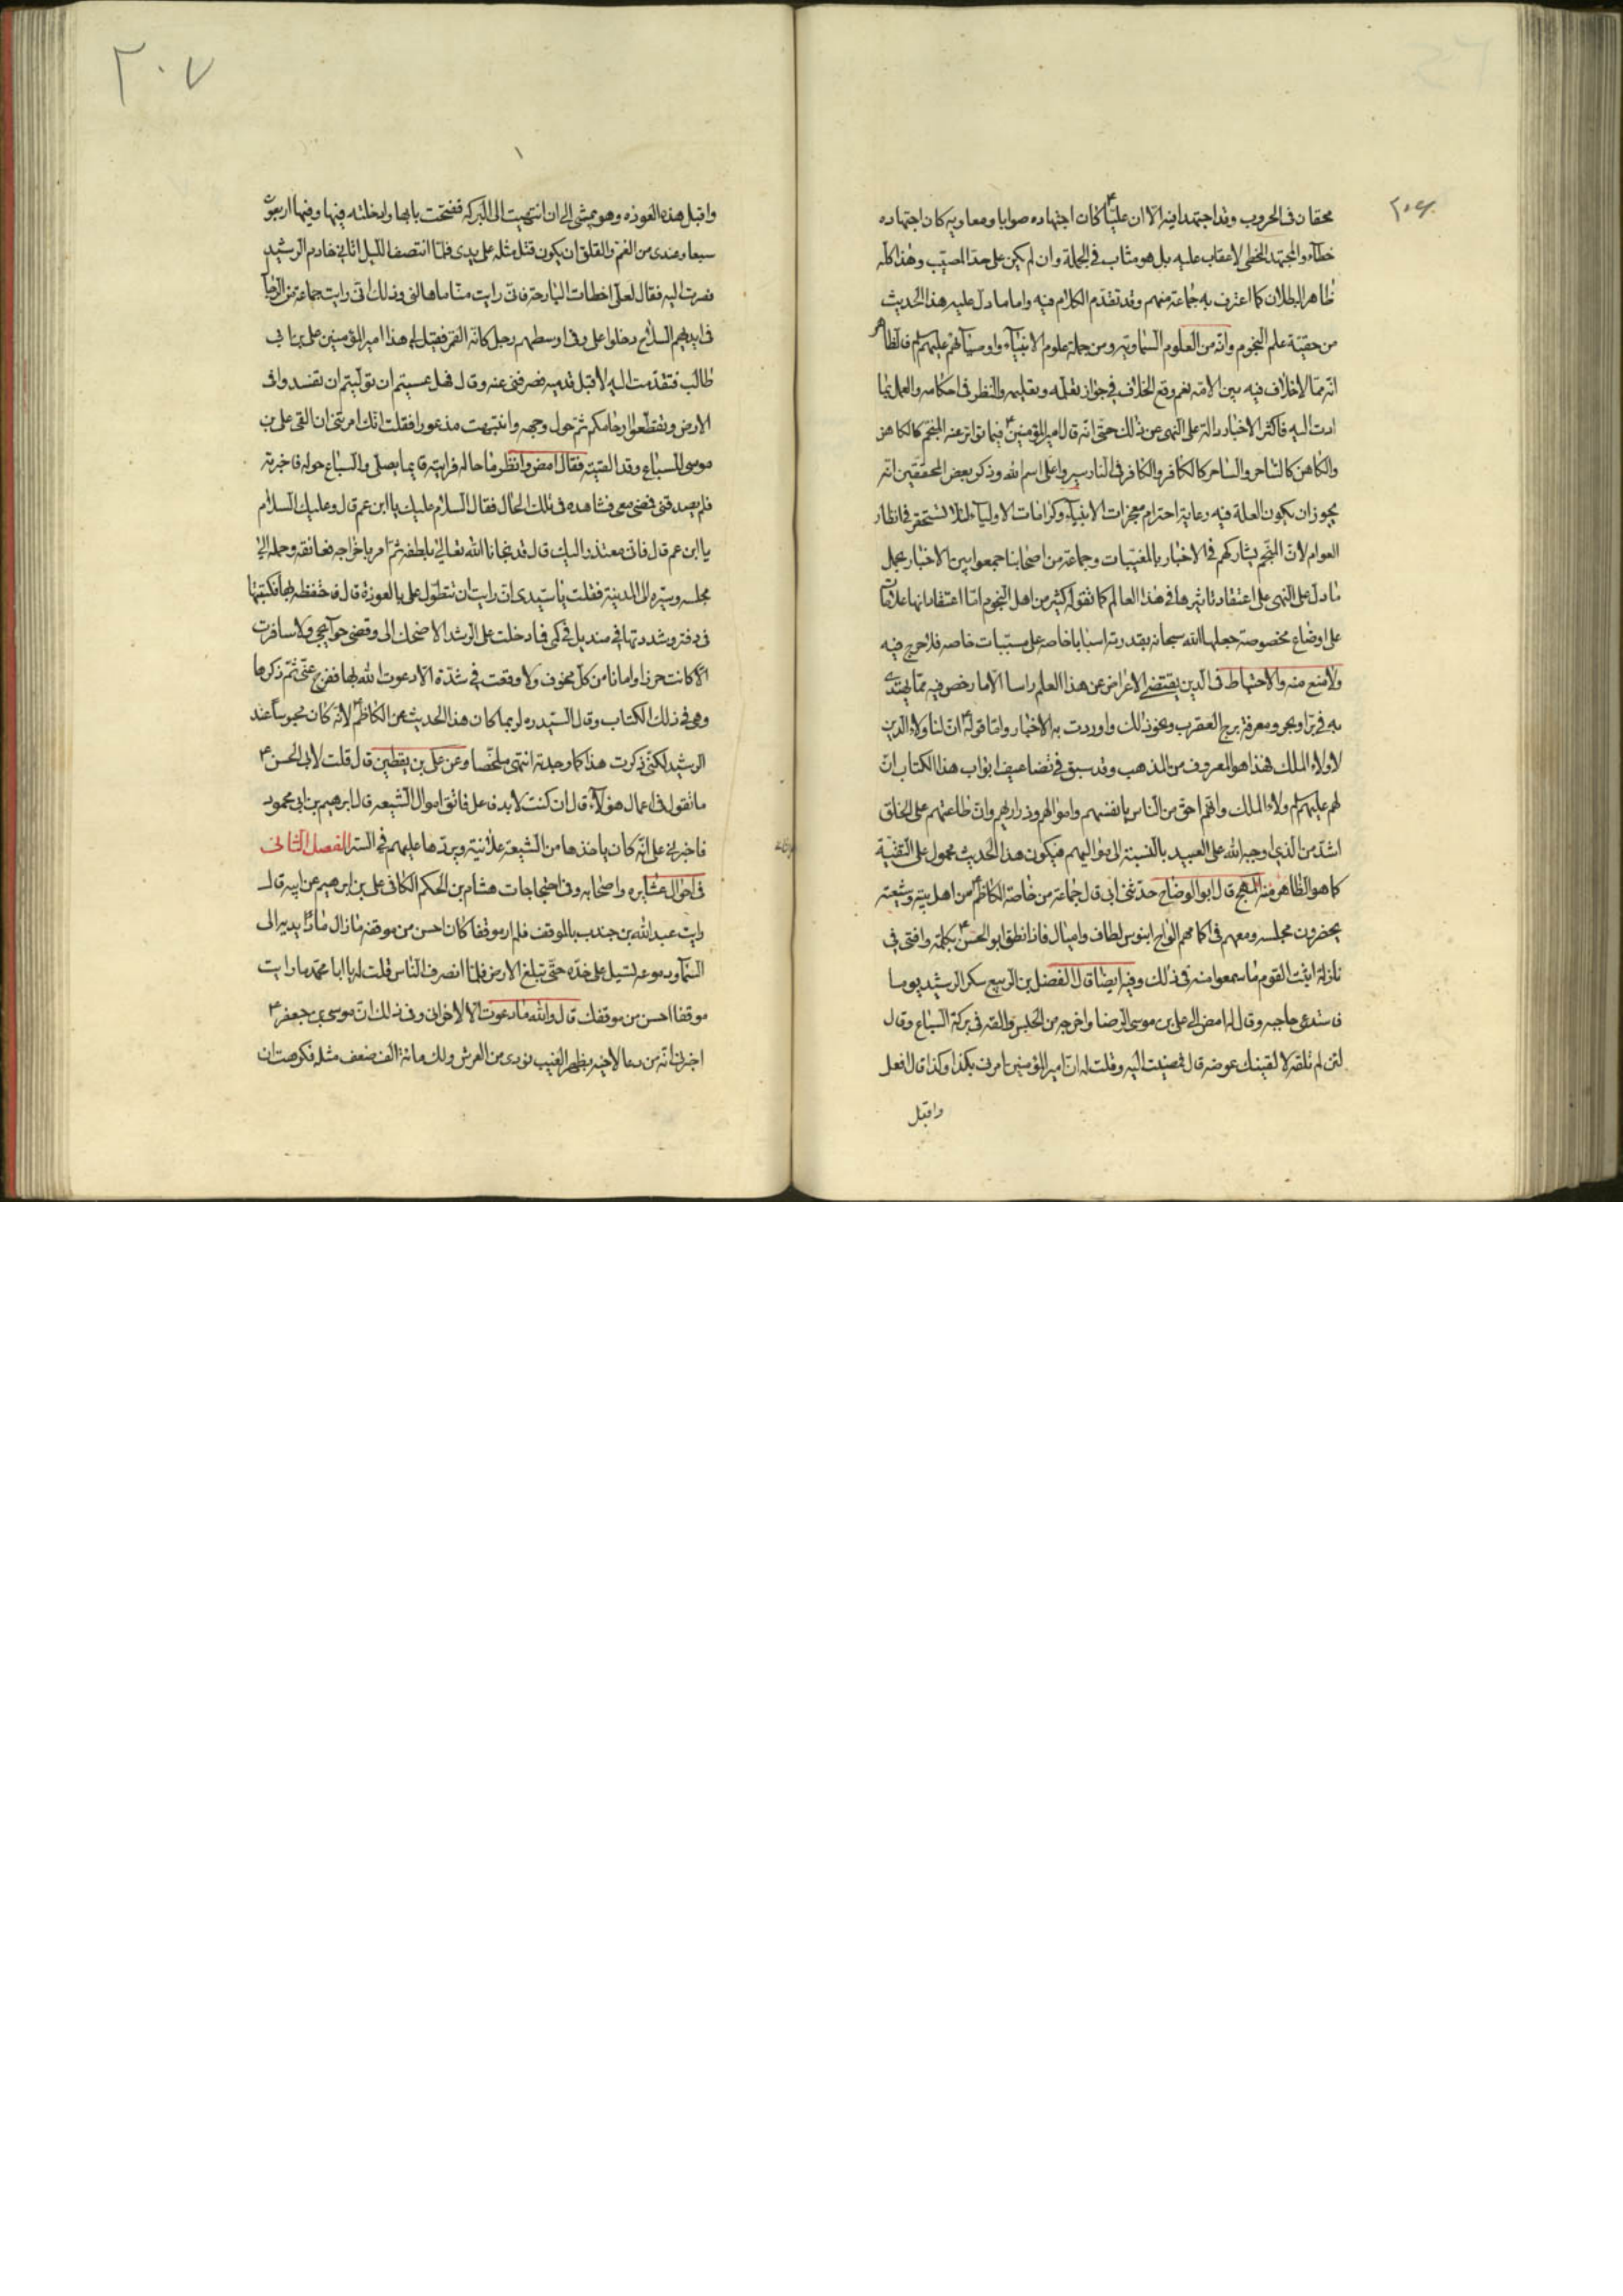 ٢٠٦
محقان فى الحروب وقد اجتهدا فيه الّا ان عليّاً كان اجتهاده صوابا ومعاويه كان اجتهاده
خطاء والمجتهد المخطى لا عقاب عليه بل هو مثاب فى الجملة وان لم يكن على حدّ المصيّب وهذا كلّه
ظاهر البطلان كما اعترف به جماعة منهم وقد تقدّم الكلام فيه واما ما دل عليه هذا الحديث
من حقيّة علم النجوم وانّه من العلوم السّماويّة ومن جملة علوم الانبيآء واوصيآئهم عليهم لم فالظاهر
انّه ممّا لا خلاف فيه بين الامّه نعم وقع الخلاف فى جواز تعلّمه وتعليمه والنّظر فى احكامه والعمل بما
ادت اليه فاكثر الاخبار دالة على النّهى عن ذلك حتّى انّه قال امير المؤمنين ع فيما تواتر عنه المنجّم كالكاهن
والكاهن كالسّاحر والسّاحر كالكافر والكافر فى النار سيروا على اسم الله وذكر بعض المحققّين انّه
يجوز ان يكون العلة فيه رعاية احترام معجزات الانبيآء وكرامات الاوليآء لئلا تستحقر فى انظار
العوام لانّ المنجّم يشاركهم فى الاخبار بالمغيّبات وجماعة من اصحابنا جمعوا بين الاخبار بحمل
ما دلّ على النهى على اعتقاد تاثيرها فى هذا العالم كما تقوله كثير من اهل النّجوم امّا اعتقاد انها علامات
على اوضاع مخصوصة جعلها الله سبحانه بقدرته اسبابا خاصه على مسبّبات خاصه فلا حرج فيه
ولا منع منه والاحتياط فى الدّين يقتضى الاعراض عن هذا العلم راسا الّا ما رخص فيه ممّا يهتدى
به فى برّ او بحر ومعرفة برج العقرب ونحو ذلك واوردت به الاخبار وامّا قوله ع انّ لنا ولاء الدين
لا ولاء الملك فهذا هو المعروف من المذهب وقد سبق فى تضاعيف ابواب هذا الكتاب انّ
لهم عليهم لم ولاء الملك وانّهم احق من النّاس بانفسهم واموالهم وذراريهم وانّ طاعتهم على الخلق
اشدّ من الذى اوجبه الله على العبيد بالنّسبة الى مواليهم فيكون هذا الحديث محمول على التّقيّة
كما هو الظّاهر منه المهج قال ابو الوضّاح حدّثنى ابى قال جماعة من خاصّة الكاظم ع من اهل بيته وشيعته
يحضرون مجلسه ومعهم فى اكمامهم الواح ابنوس لطاف واميال فاذا نطق ابو الحسن ع بكلمة وافتى فى
نازلة اثبت القوم ما سمعوا منه فى ذلك وفيه ايضا قال الفضل بن الربيع سكر الرشيد يوما
فاستدعى حاجبه وقال له امض الى على بن موسى الرضا واخرجه من الحبس والقه فى بركة السّباع وقال
لئن لم تلقه لالقينك عوضه قال فمضيت اليه وقلت له انّ امير المؤمنين امرنى بكذا وكذا قال افعل
واقبل
٢٠٧
واقبل هذه العوذه وهو يمشى الى ان انتهيت الى البركه ففتحت بابها وادخلته فيها وفيها اربعون
سبعا وعندى من الغم والقلق ان يكون قتل مثله على يدى فلمّا انتصف اللّيل اتانى خادم الرشيد
فصرت اليه فقال لعلّى اخطات البارحة فانّى رايت مناما هالنى وذلك انّى رايت جماعة من الرجال
فى ايديهم السلاح دخلوا على وفى اوسطهم رجل كانّه القمر فقيل لى هذا امير المؤمنين على بن ابى
طالب فتقدّمت اليه لاقبل قدميه فصرفنى عنه وقال فهل عسيتم ان توليتم ان تفسدوا فى
الارض وتقطّعوا ارحامكم ثمّ حول وجهه وانتبهت مذعورا فقلت انّك امرتنى ان القى على بن
موسى للسّباع وقد القيته فقال امض وانظر ما حاله فرايته قايما يصلّى والسّباع حوله فاخبرته
فلم يصدقنى فمضى معى فشاهده فى تلك الحال فقال السلام عليك يا ابن عم قال وعليك السّلام
يا ابن عم قال فانّى معتذر اليك قال قد نجانا الله تعالى بلطفه ثمّ امر باخراجه فعانقه وحمله الى
مجلسه وسيّره الى المدينة فقلت يا سيّدى ان رايت ان تتطوّل على بالعوذة قال فاحتفظ بها فكتبتها
فى دفتر وشددتها فى منديل فى كمى فما دخلت على الرشيد الا ضحك الى وقضى حوآيجى ولا سافرت
الّا كانت حرزا وامانا من كلّ مخوف ولا وقعت فى شدّة الّا دعوت الله بها ففرج عنّى ثمّ ذكرها
وهى فى ذلك الكتاب وقال السّيد ره لربما كان هذا الحديث عن الكاظم ع لانّه كان محبوساً عند
الرشيد لكنّى ذكرت هذا كما وجدته انتهى ملخّصا وعن على بن يقطين قال قلت لابى الحسن ع
ما تقول فى اعمال هؤلآء قال ان كنت لابد فاعلا فاتّق اموال الشّيعه قال ابرهيم بن ابى محمود
فاخبرنى على انّه كان ياخذها من الشّيعة علانية ويردّها عليهم فى السّر الفصل الثّانى
فى احوال عشايره واصحابه وفى احتجاجات هشام بن الحكم الكافى على بن ابرهيم عن ابيه قال
رايت عبد الله بن جندب بالموقف فلم ار موقفا كان احسن من موقفه ما زال مادّا يديه الى
السّمآء ودموعه تسيل على خدّه حتّى تبلغ الارض فلمّا انصرف النّاس قلت له يا ابا محمّد ما رايت
موقفا احسن من موقفك قال والله ما دعوت الّا لاخوانى وذلك انّ موسى بن جعفر ع
اخبرنى انّه من دعا لاخيه بظهر الغيب نودى من العرش ولك مائة الف ضعف مثله فكرهت ان